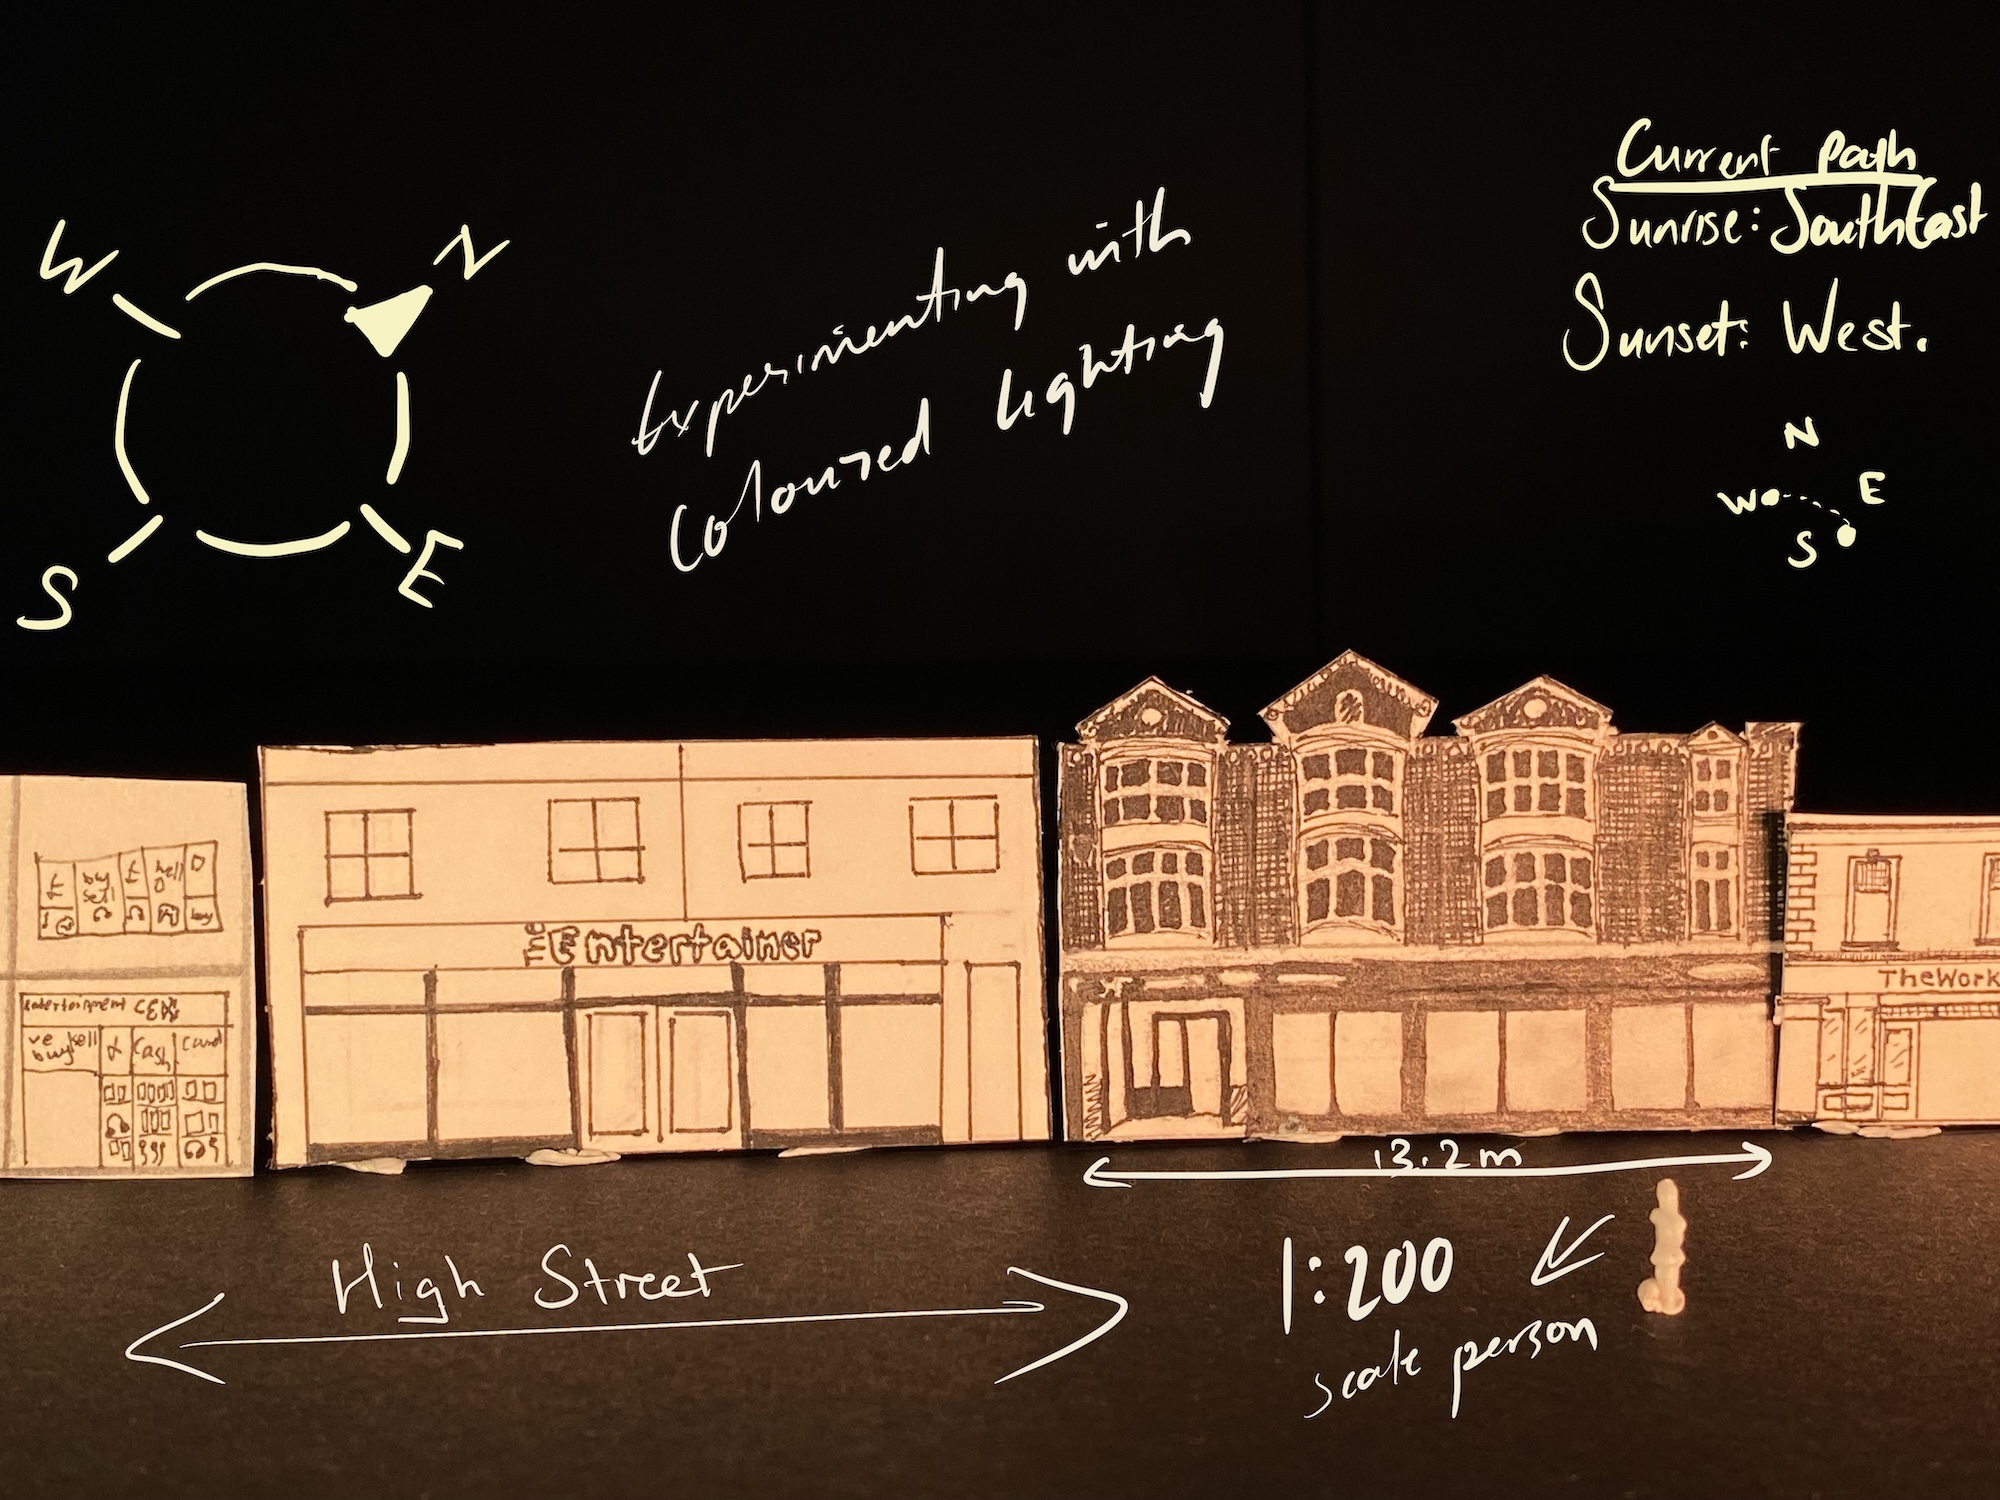 Current path
Sunrise: SouthEast
Sunset: West.
N
W E
S
W N
S E
Experimenting with
Coloured lighting
£ buy sell £
buy
Entertainment
we buy sell £ Cash Card
The Entertainer
TheWork
13.2m
High Street
1:200
scale person